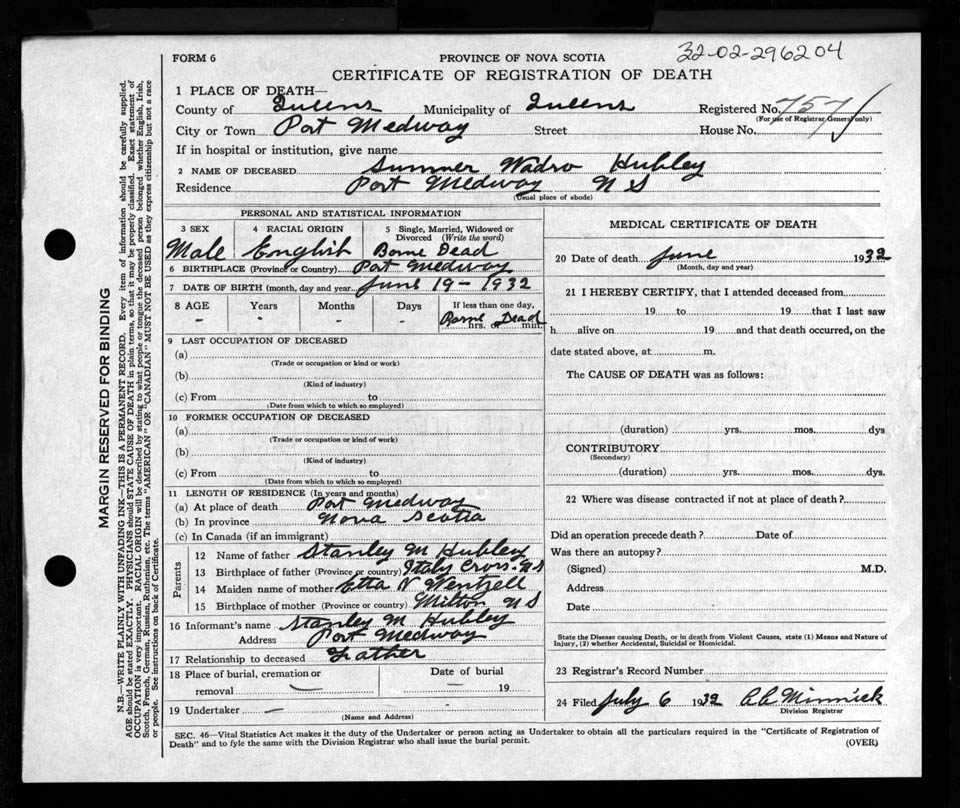 32-02-296204
FORM 6
PROVINCE OF NOVA SCOTIA
CERTIFICATE OF REGISTRATION OF DEATH
1 PLACE OF DEATH—
County of Queens Municipality of Queens Registered No. 757
(For use of Registrar General only)
City or Town Port Medway Street House No.
If in hospital or institution, give name
2 NAME OF DECEASED Sumner Wadro Hubley
Residence Port Medway N S
(Usual place of abode)
PERSONAL AND STATISTICAL INFORMATION
3 SEX
Male
4 RACIAL ORIGIN
English
5 Single, Married, Widowed or Divorced (Write the word)
Borne Dead
6 BIRTHPLACE (Province or Country) Port Medway
7 DATE OF BIRTH (month, day and year) June 19 - 1932
8 AGE Years Months Days If less than one day,
- - - - Borne Dead
hrs. or min.
9 LAST OCCUPATION OF DECEASED
(a)
(Trade or occupation or kind or work)
(b)
(Kind of industry)
(c) From to
(Date from which to which so employed)
10 FORMER OCCUPATION OF DECEASED
(a)
(Trade or occupation or kind of work)
(b)
(Kind of industry)
(c) From to
(Date from which to which so employed)
11 LENGTH OF RESIDENCE (In years and months)
(a) At place of death Port Medway
(b) In province Nova Scotia
(c) In Canada (if an immigrant)
Parents
12 Name of father Stanley M Hubley
13 Birthplace of father (Province or country) Italy Cross N S
14 Maiden name of mother Etta V Wentzell
15 Birthplace of mother (Province or country) Milton N S
16 Informant's name Stanley M Hubley
Address Port Medway
17 Relationship to deceased Father
18 Place of burial, cremation or removal — Date of burial — 19
19 Undertaker —
(Name and Address)
MEDICAL CERTIFICATE OF DEATH
20 Date of death June 1932
(Month, day and year)
21 I HEREBY CERTIFY, that I attended deceased from
19 to 19 that I last saw
h alive on 19 and that death occurred, on the
date stated above, at m.
The CAUSE OF DEATH was as follows:
(duration) yrs. mos. dys
CONTRIBUTORY
(Secondary)
(duration) yrs. mos. dys.
22 Where was disease contracted if not at place of death?
Did an operation precede death? Date of
Was there an autopsy?
(Signed) M.D.
Address
Date
State the Disease causing Death, or in death from Violent Causes, state (1) Means and Nature of
Injury, (2) whether Accidental, Suicidal or Homicidal.
23 Registrar's Record Number
24 Filed July 6 1932 A A Minnick
Division Registrar
SEC. 46—Vital Statistics Act makes it the duty of the Undertaker or person acting as Undertaker to obtain all the particulars required in the "Certificate of Registration of
Death" and to fyle the same with the Division Registrar who shall issue the burial permit.
(OVER)
MARGIN RESERVED FOR BINDING
N.B.—WRITE PLAINLY WITH UNFADING INK—THIS IS A PERMANENT RECORD. Every item of information should be carefully supplied.
AGE should be stated EXACTLY. PHYSICIANS should STATE CAUSE OF DEATH in plain terms, so that it may be properly classified. Exact statement of
OCCUPATION is very important. RACIAL ORIGIN will be described by stating to what people or tongue the deceased person belonged whether English, Irish,
Scotch, French, German, Russian, Ruthenian, etc. The terms "AMERICAN" OR "CANADIAN" MUST NOT BE USED as they express citizenship but not a race
or people. See instructions on back of Certificate.